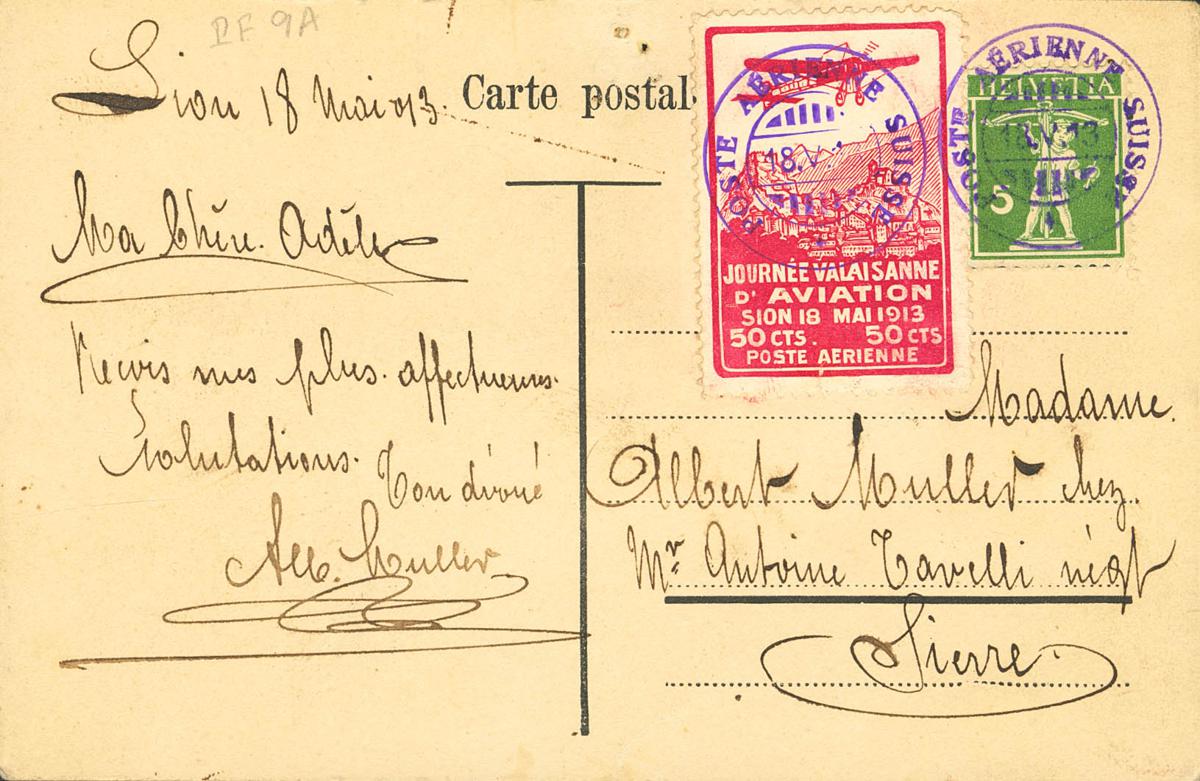 PF 9A
Sion 18 Mai 913.
Carte postal
Ma Chère. Adèle
Reçois mes plus. affectueuses.
Salutations.
Ton dévoué
Alb. Muller
POSTE AÉRIENNE SUISSE
18.V.1
JOURNÉE VALAISANNE
D' AVIATION
SION 18 MAI 1913
50 CTS. 50 CTS
POSTE AERIENNE
POSTE AÉRIENNE SUISSE
18.V.13
HELVETIA
5
Madame.
Albert Muller chez.
Mr Antoine Tavelli négt
Sierre.